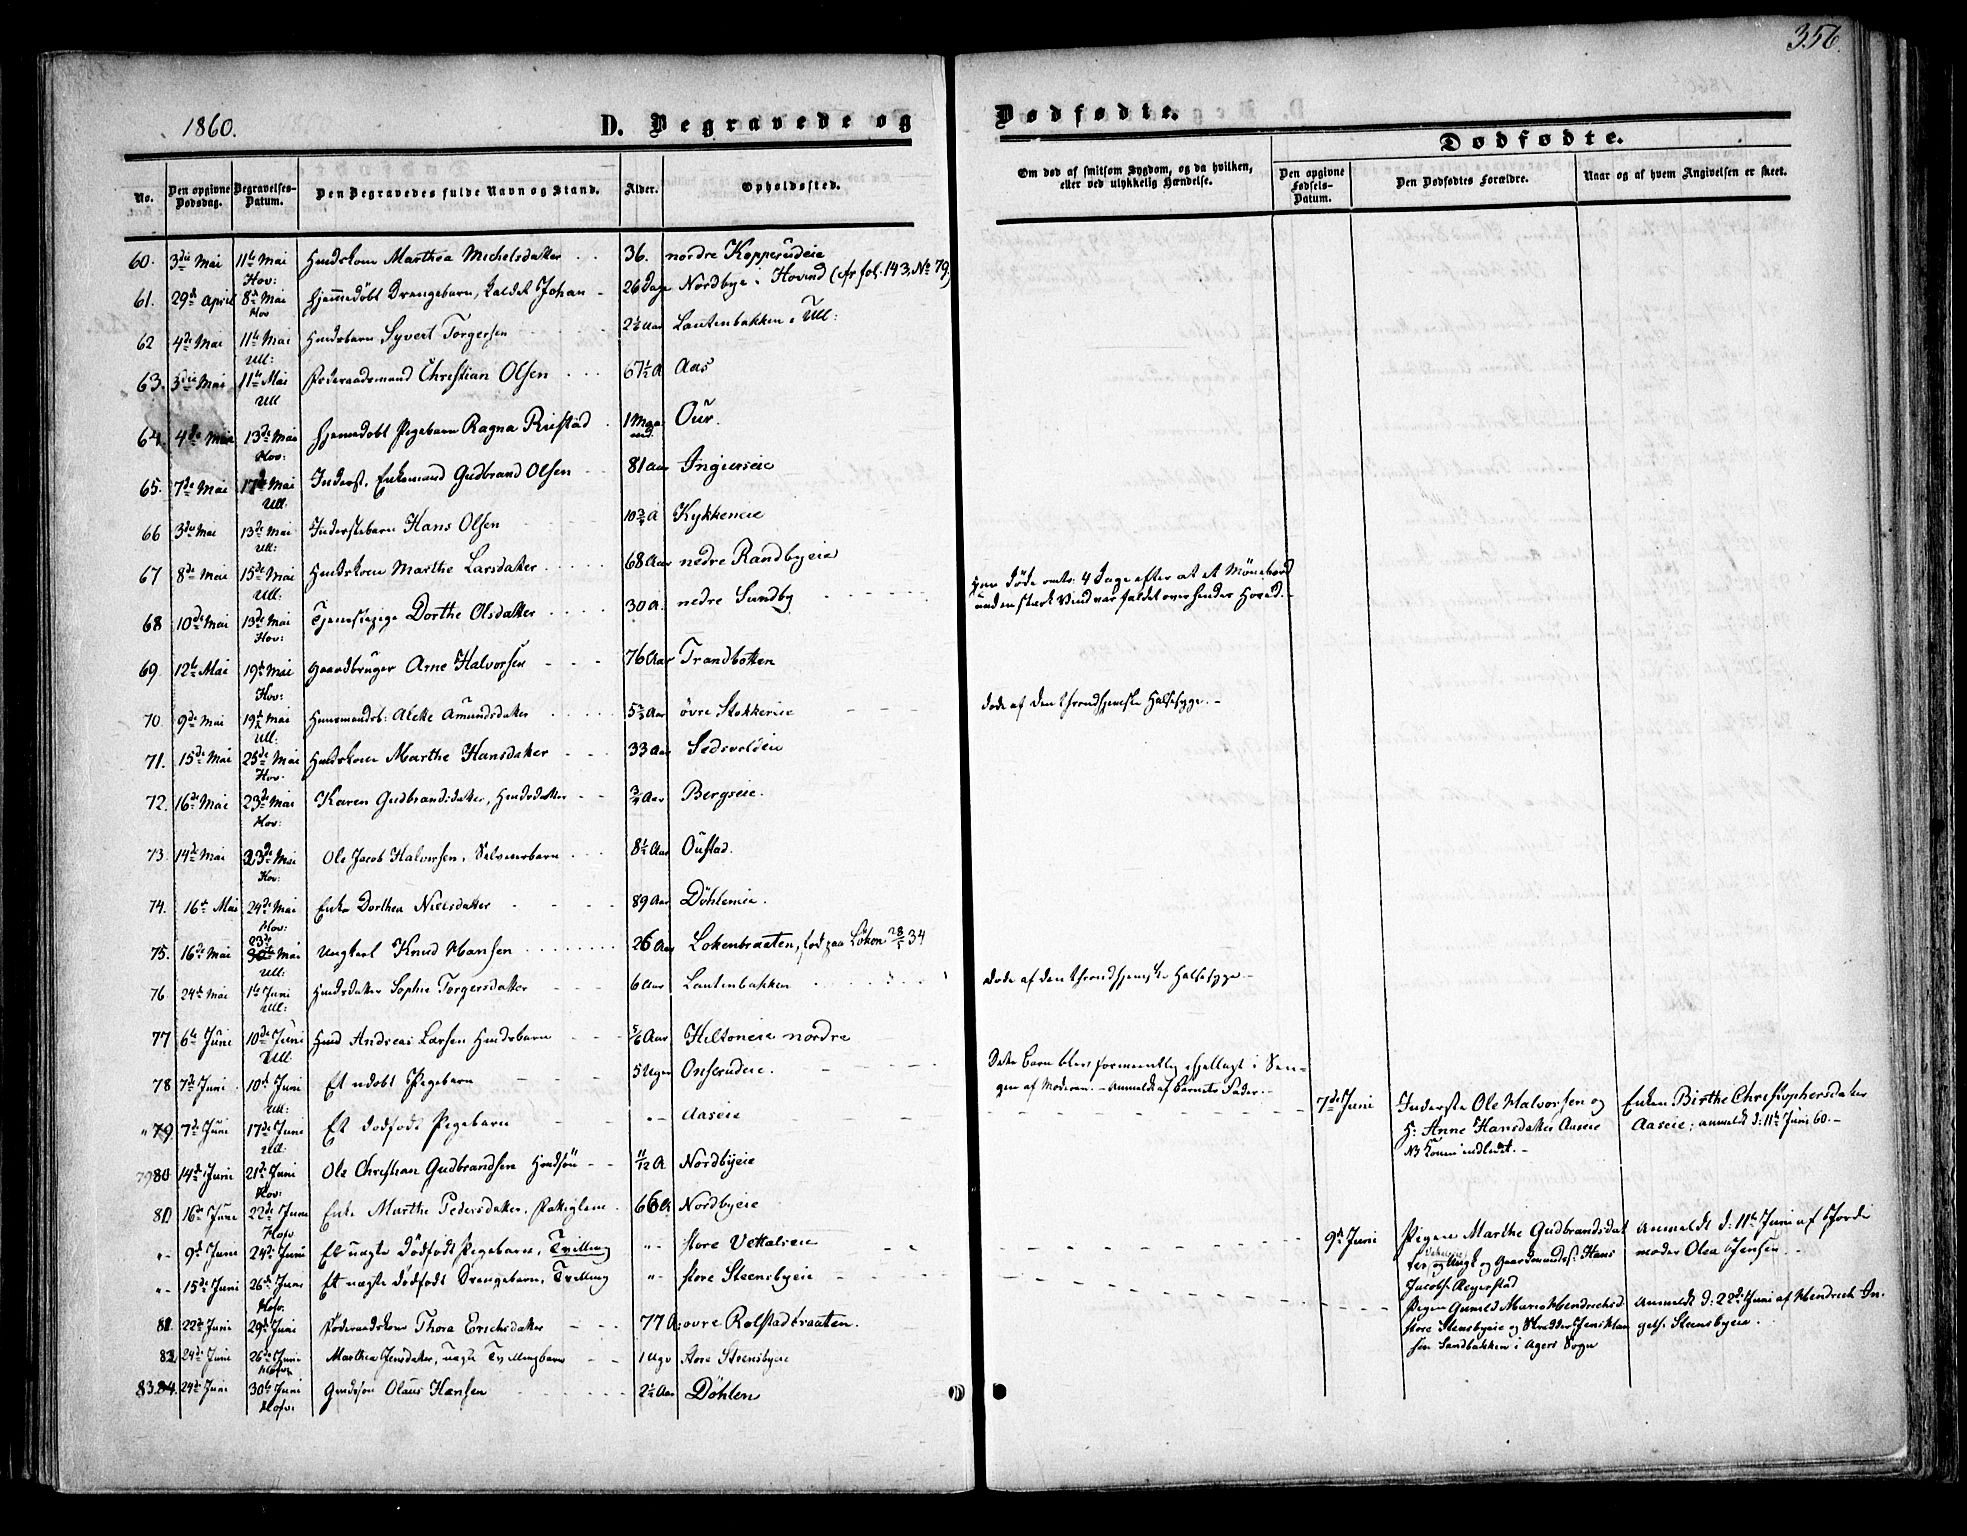 356.
1860. D. Begravede og Dødfødte.
Dødfødte.
No. Den opgivne Dødsdag. Begravelses-Datum. Den Begravedes fulde Navn og Stand. Alder. Opholdssted.
Om død af smitsom Sygdom, og da hvilken, eller ved ulykkelig Hændelse. Den opgivne Fødsels-Datum. Den Dødfødtes Forældre. Naar og af hvem Angivelsen er skeet.
60. 3die Mai 11te Mai Hov: Marthea Michelsdatter 36. nordre Kopperudeie
61. 29de April 8de Mai Hov hjemmedøbt Drengebarn, kaldet Johan 26 Dage Nordbye i Hovind (cfr fol. 143, No 79)
62 4de Mai 11te Mai Ull: Huusbarn Syvert Torgersen 2½ Aar Lautenbakken i Ull:
63. 3die Mai 11te Mai Ull Føderaadsmand Christian Olsen 67½ A Aas
64. 4de Mai 13de Mai Hov: hjemmedøbt Pigebarn Ragna Ruistad 1 Maaned. Our.
65. 7de Mai 17de Mai Ull. Inderst, Enkemand Gudbrand Olsen 81 Aar Ingierseie
66 3de Mai 13de Mai Ull: Inderstebarn Hans Olsen 10¾ A Kykkeneie
67 8de Mai 15de Mai Ull: Marthe Larsdatter 68 Aar nedre Randbyeie
68 10de Mai 13de Mai Hov: Tjenestepige Dorthe Olsdatter 30 A. nedre Sundby
døde omtr: 4 Dage efter at et Mønebord
under stærk Vind var faldet over hendes Hoved.
69 12te Mai 19de Mai Hov: Gaardbruger Arne Halvorsen 76 Aar Trandbotten
70 9de Mai 19de Mai Ull: Huusmandsb: Amundsdatter 5⅔ Aar øvre Stokkereie
døde af den throndhjemske Halssyge.
71. 15de Mai 25de Mai Hov. Marthe Hansdatter 33 Aar
72. 16de Mai 23de Mai Hov: Karen Gudbrandsdatter, Huusdatter ¾ Aar Bergseie.
73. 14de Mai 23de Mai Hov: Ole Jacob Halvorsen, Selveierbarn 8½ Aar Oustad.
74. 16de Mai 24de Mai Hov: Enke Dorthea Nielsdatter 89 Aar Döhleneie.
75. 16de Mai 23de Mai Ull: Ungkarl Knud Hansen 26 Aar Lökenbraaten, fød paa Löken 28/1 34
76 24de Mai 1te Juni Ull: Huusdatter Sophie Torgersdatter 6 Aar Lautenbakken
døde af den throndhjemske Halssyge
77 6te Juni 10de Juni Ull Andreas Larsen Huusbarn 5/6 Aar Hiltoneie nordre
78 7de Juni 10de Juni Ull: Et udøbt Pigebarn 5 Uger Onsrudeie.
Dette Barn blev formeentlig ihjellagt i Sen-
gen af Moderen. Anmeldt af Barnets Fader.
" 79 7de Juni 17de Juni Ull. Et dødfødt Pigebarn " Aaseie
7de Juni Inderste Ole Halvorsen og
H: Anne Hansdatter Aaseie
NB Konen indledet.
Enken Birthe Christophersdatter
Aaseie; anmeldt d: 11te Juni 60.
79 80 14de Juni 21de Juni Hov: Ole Christian Gudbrandsen Huussön 11/12 A Nordbyeie
80 16de Juni 22de Juni Hofv Enke Marthe Pedersdatter, Fattiglem 66 A. Nordbyeie
" 9de Juni 24de Juni Et uægte Dødfødt Pigebarn, Tvilling " store Vettalseie
9de Juni Pigen Marthe Gudbrandsdat
ter og Ungk og Gaardmandss. Hans
Jacobs. Regerstad
Anmeldt d: 11te Juni af Gjorde
moder Olea Jensen.
" 15de Juni 26de Juni Hofv. Et uægte dødfødt Drengebarn, Tvilling " store Steensbyeie
Pigen Gunild Marie Hendrichsd.
store Steensbyeie og Skrædder Jens Han
sen Sandbakken i Agers Sogn
Anmeldt d: 22de Juni af Hendrich In-
gels. Steensbyeie.
81 22de Juni 29de Juni Føderaadskone Thora Erichsdatter 77 A: øvre Rolstadbraaten.
82 24de Juni 26de Juni Hofv Marthea Jensdatter, uægte Tvillingbarn 1 Uge store Steensbyeie
83. 84. 24de Juni 30te Juni Hofv. Olaus Hansen 2½ Aar Döhlen